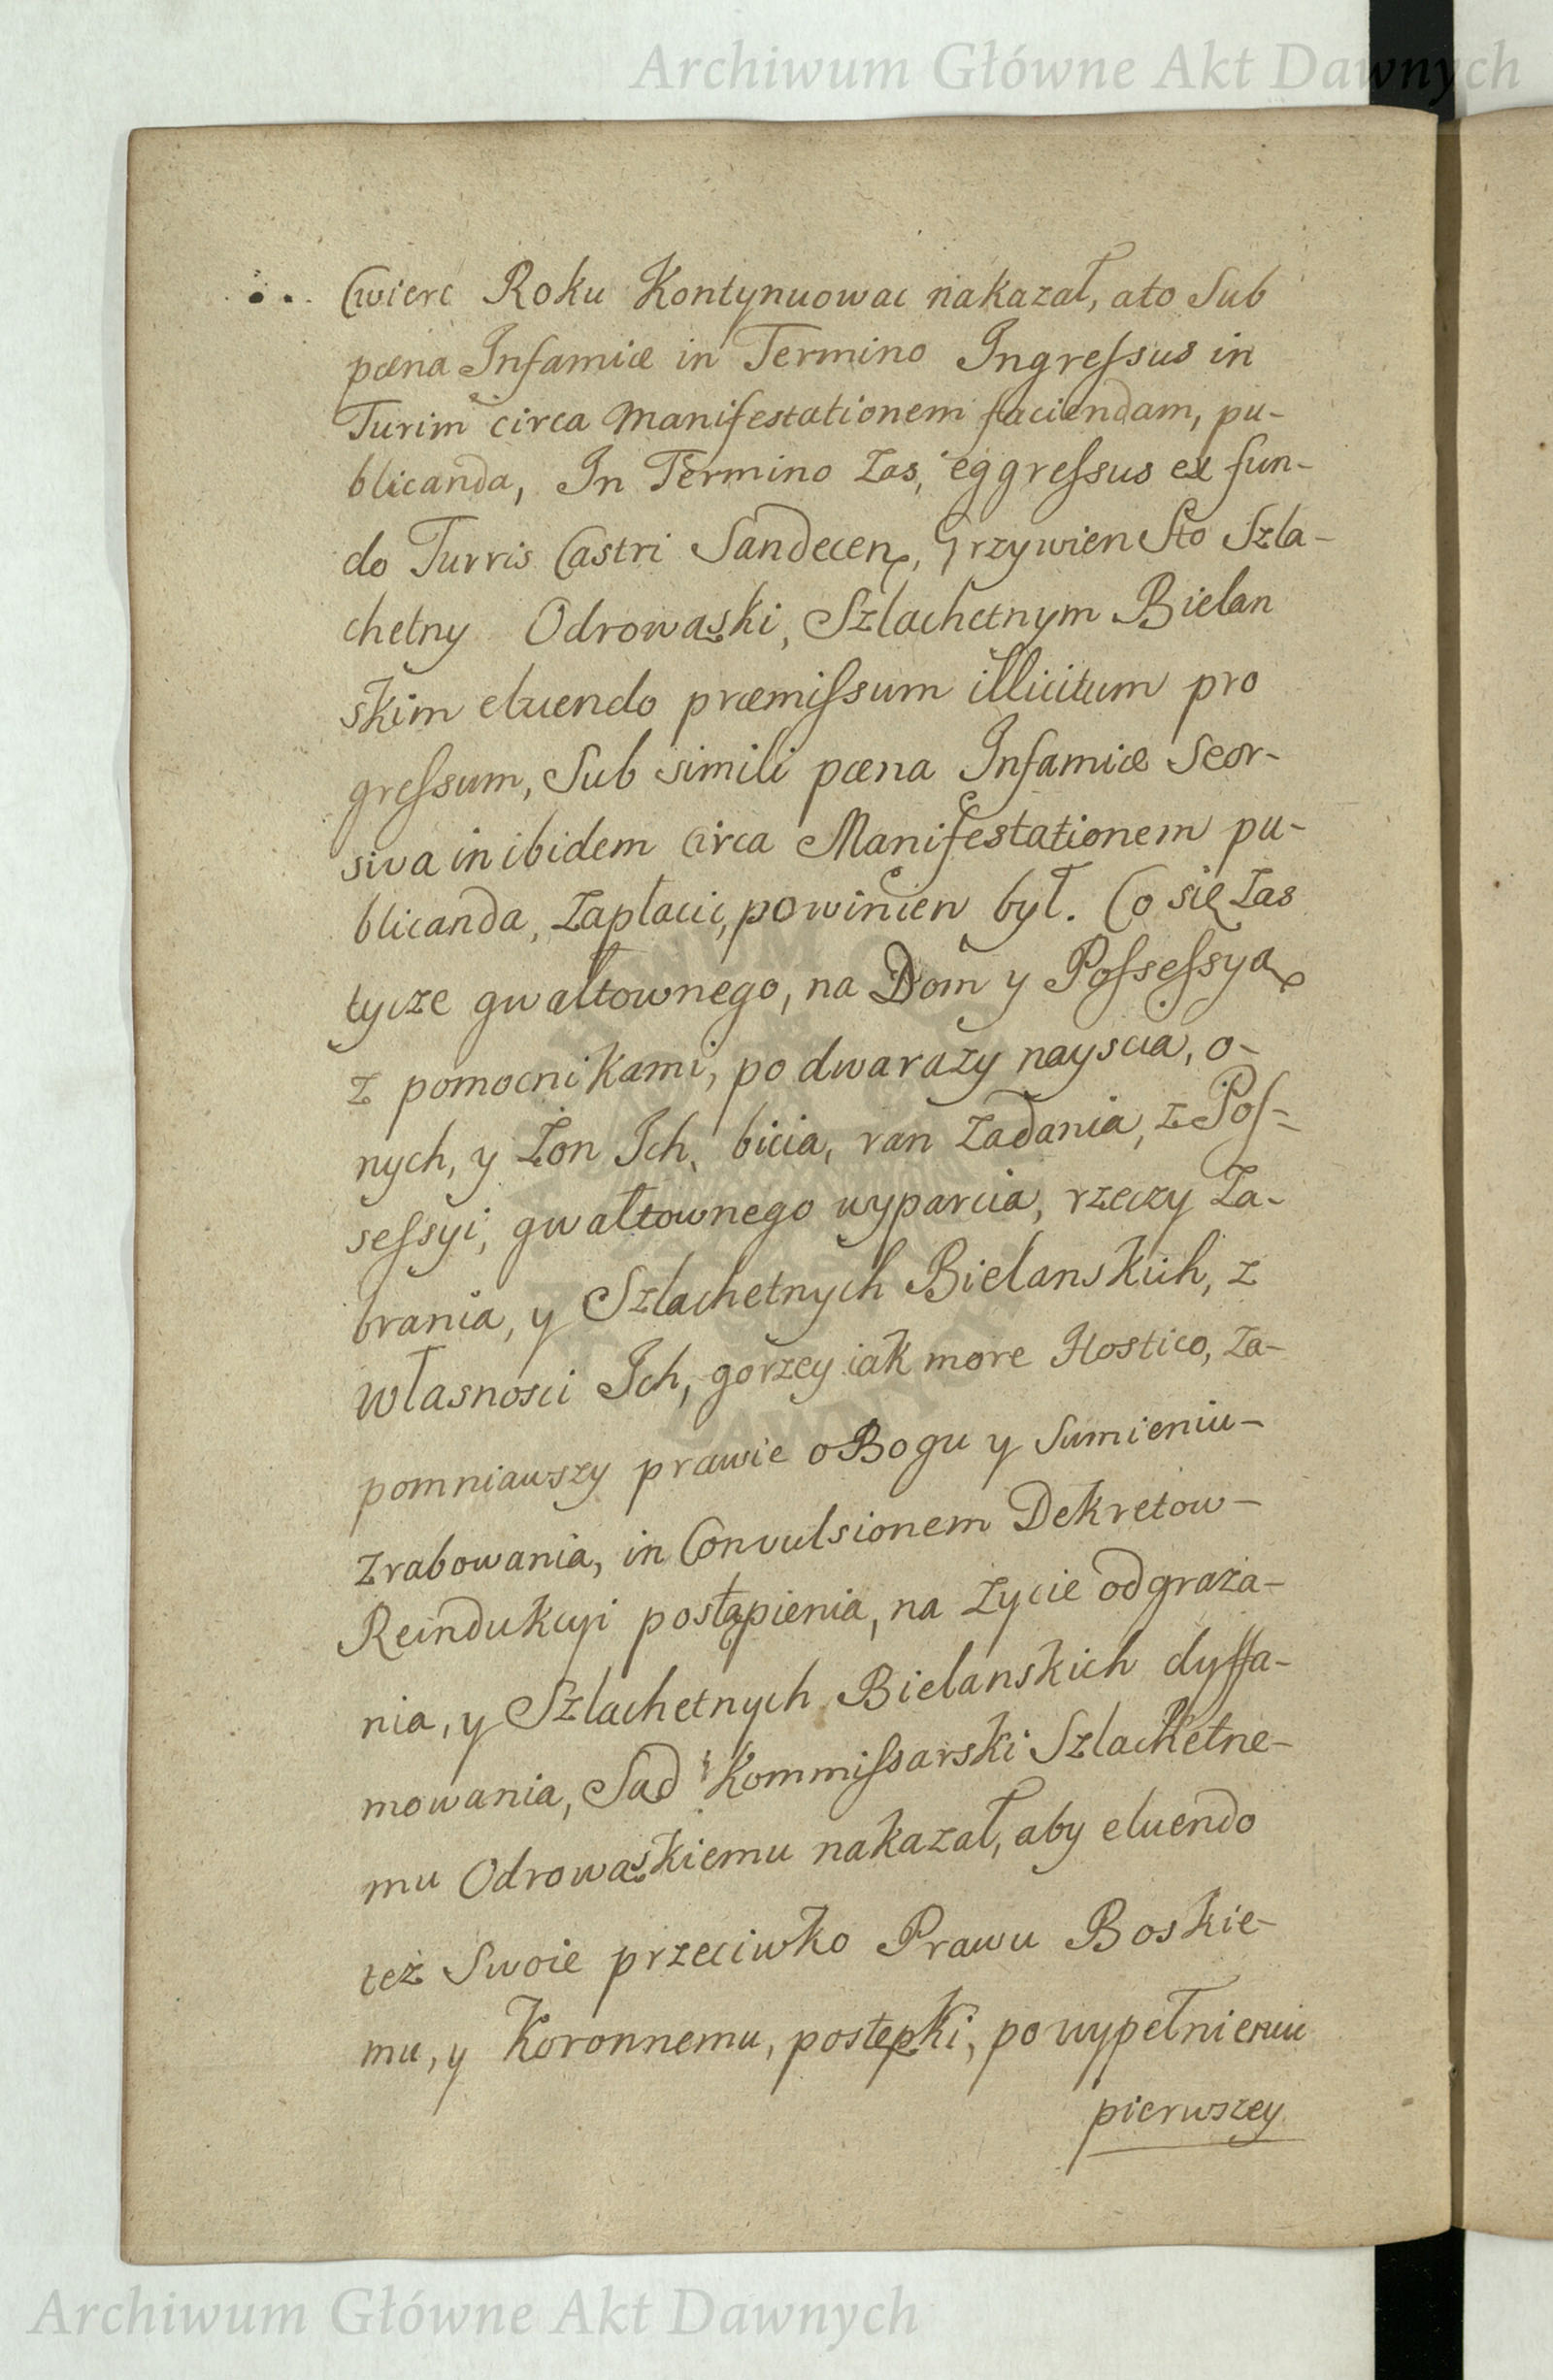 Archiwum Główne Akt Dawnych
Cwierc Roku Kontynuowac nakazał, ato Sub
pœna Infamiæ in Termino Ingreſsus in
Turim circa Manifestationem faciendam, pu-
blicanda, In Termino zas, eggreſsus ex fun-
do Turris Castri Sandecen, Grzywien Sto Szla-
chetny Odrowąski, Szlachetnym Bielan
skim eluendo præmiſsum illicitum pro
greſsum, Sub simili pœna Infamiæ Seor-
siva in ibidem circa Manifestationem pu-
blicanda, zapłacic, powinien był. Co się zas
tycze gwałtownego, na Dom y Poſseſsyą
z pomocnikami, po dwa razy nayscia, o-
nych, y Żon Ich, bicia, ran zadania, z Poſ-
seſsyi, gwałtownego wyparcia, rzeczy za-
brania, y Szlachetnych Bielanskich, z
własnosci Ich, gorzey iak more Hostico, za-
pomniawszy prawie o Bogu y Sumieniu-
zrabowania, in Convulsionem Dekretow-
Reindukcyi postąpienia, na życie odgraża-
nia, y Szlachetnych Bielanskich dyffa-
mowania, Sąd Kommiſsarski Szlachetne-
mu Odrowąskiemu nakazał, aby eluendo
też Swoie przeciwko Prawu Boskie-
mu, y Koronnemu, postępki, po wypełnieniu
pierwszey
Archiwum Główne Akt Dawnych